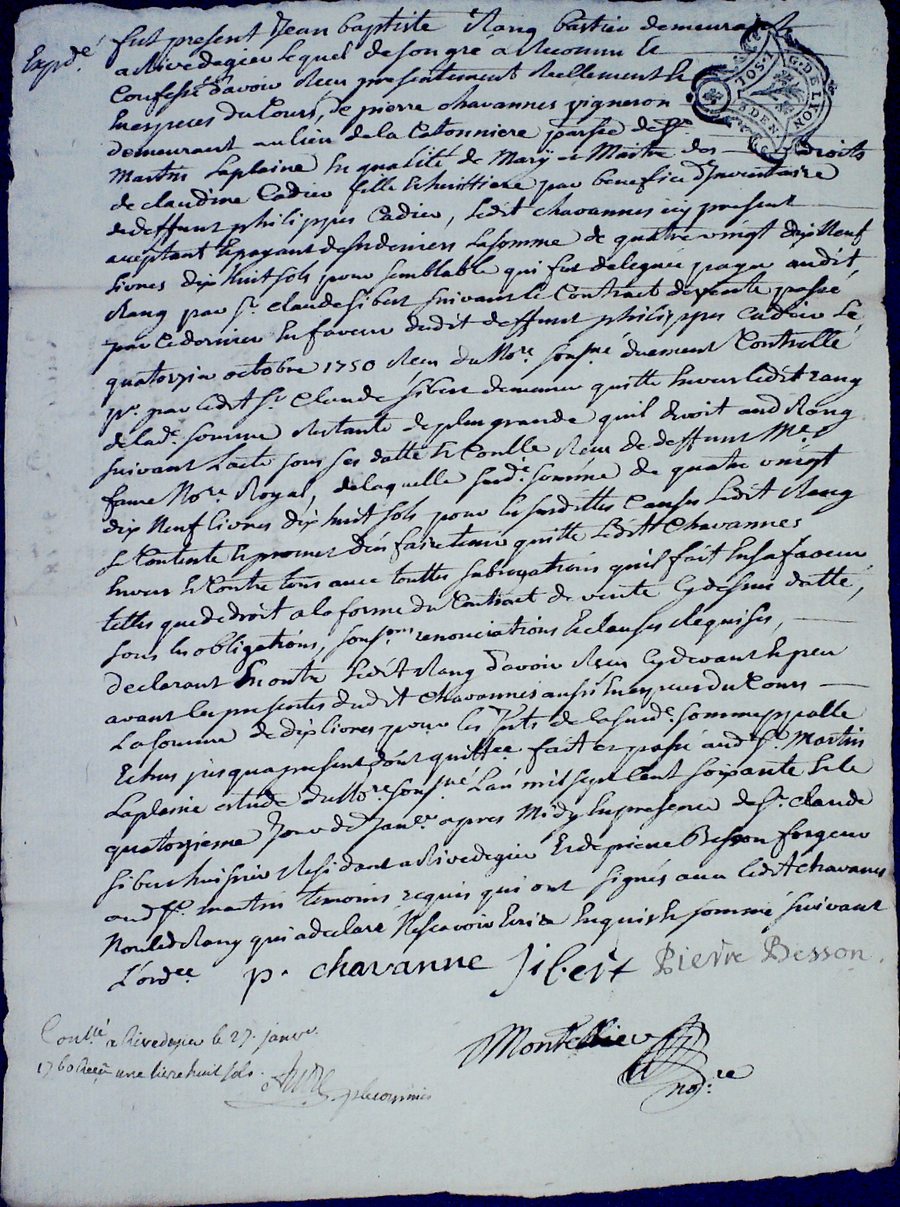 Expdé
fut present Jean baptiste Rang bastier demeurant
a Rivedegier lequel de son gre a Reconnu et
Confessé d'avoir Receu presentement Reellement et
En especes du Cours, de pierre chavannes vigneron
demeurant au lieu de la Catonniere parroisse de St
Martin Laplaine En qualité de Mary et Maitre des Droits
de claudine Cadier fille et heritiere par benefice d'Inventaire
de deffunt philippes Cadier, ledit chavannes icy present
aceptant Et payant de ses deniers La somme de quatre vingt dix Neuf
livres dix huit sols pour semblable qui fut deleguée payer audit
Rang par Sr. Claude Sibert suivant le Contract de vente passé
par ce dernier En faveur dudit deffunt philippes Cadier Le
quatorzie octobre 1750 Receu du Nore. sousné duement Controllé
pr. par ledit Sr. Claude Sibert demeurer quitte Envers ledit rang
de lad. somme Restante de plus grande quil devoit aud Rang
suivant Lacte sous ses datte et Conlle Receu de deffunt Me.
faure Nore. Royal, de laquelle susde. somme de quatre vingt
dix Neuf livres dix huit sols pour les susdittes Causes Ledit Rang
se Contente Et promet d'en faire tenir quitte Ledit Chavannes
Envers Et Contre tous avec touttes subrogations quil fait En sa faveur
telles que de droit a la forme du Contract de vente Cy dessus datté,
sous les obligations, soumons renonciations Et clauses Requises,
declarant En outre Ledit Rang d'avoir Receu Cy devant Et peu
avant les presentes dudit Chavannes aussi En especes du Cours
La somme de dix livres pour les Jnts de la susde. somme ppalle
Echus jusqua present dont quittce. fait et passé aud St. Martin
Laplaine etude du Nore. sousné L'an mil sept Cent soixante Et le
quatorzieme Jour de Janer. apres Midy En presence de Sr. Claude
Sibert huissier Residant a Rivedegier Et de pierre Besson forgeur
aud St. martin temoins requis qui ont signés avec ledit chavannes
Non led Rang qui a declaré Ne scavoir Ecrire Enquis Et sommé suivant
L'ordce
p. chavanne Sibert Pierre Besson.
Montellier
nore.
Conllé a Rivedegier le 27. janvr.
1760 Receu une livre huit sols.
G. DE LYON